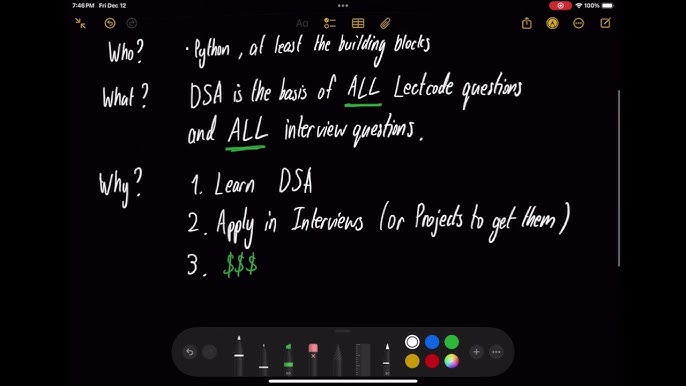 7:46 PM Fri Dec 12
100%
Aa
Who? · Python, at least the building blocks
What? DSA is the basis of ALL Leetcode questions
and ALL interview questions.
Why? 1. Learn DSA
2. Apply in Interviews (or Projects to get them)
3. $$$